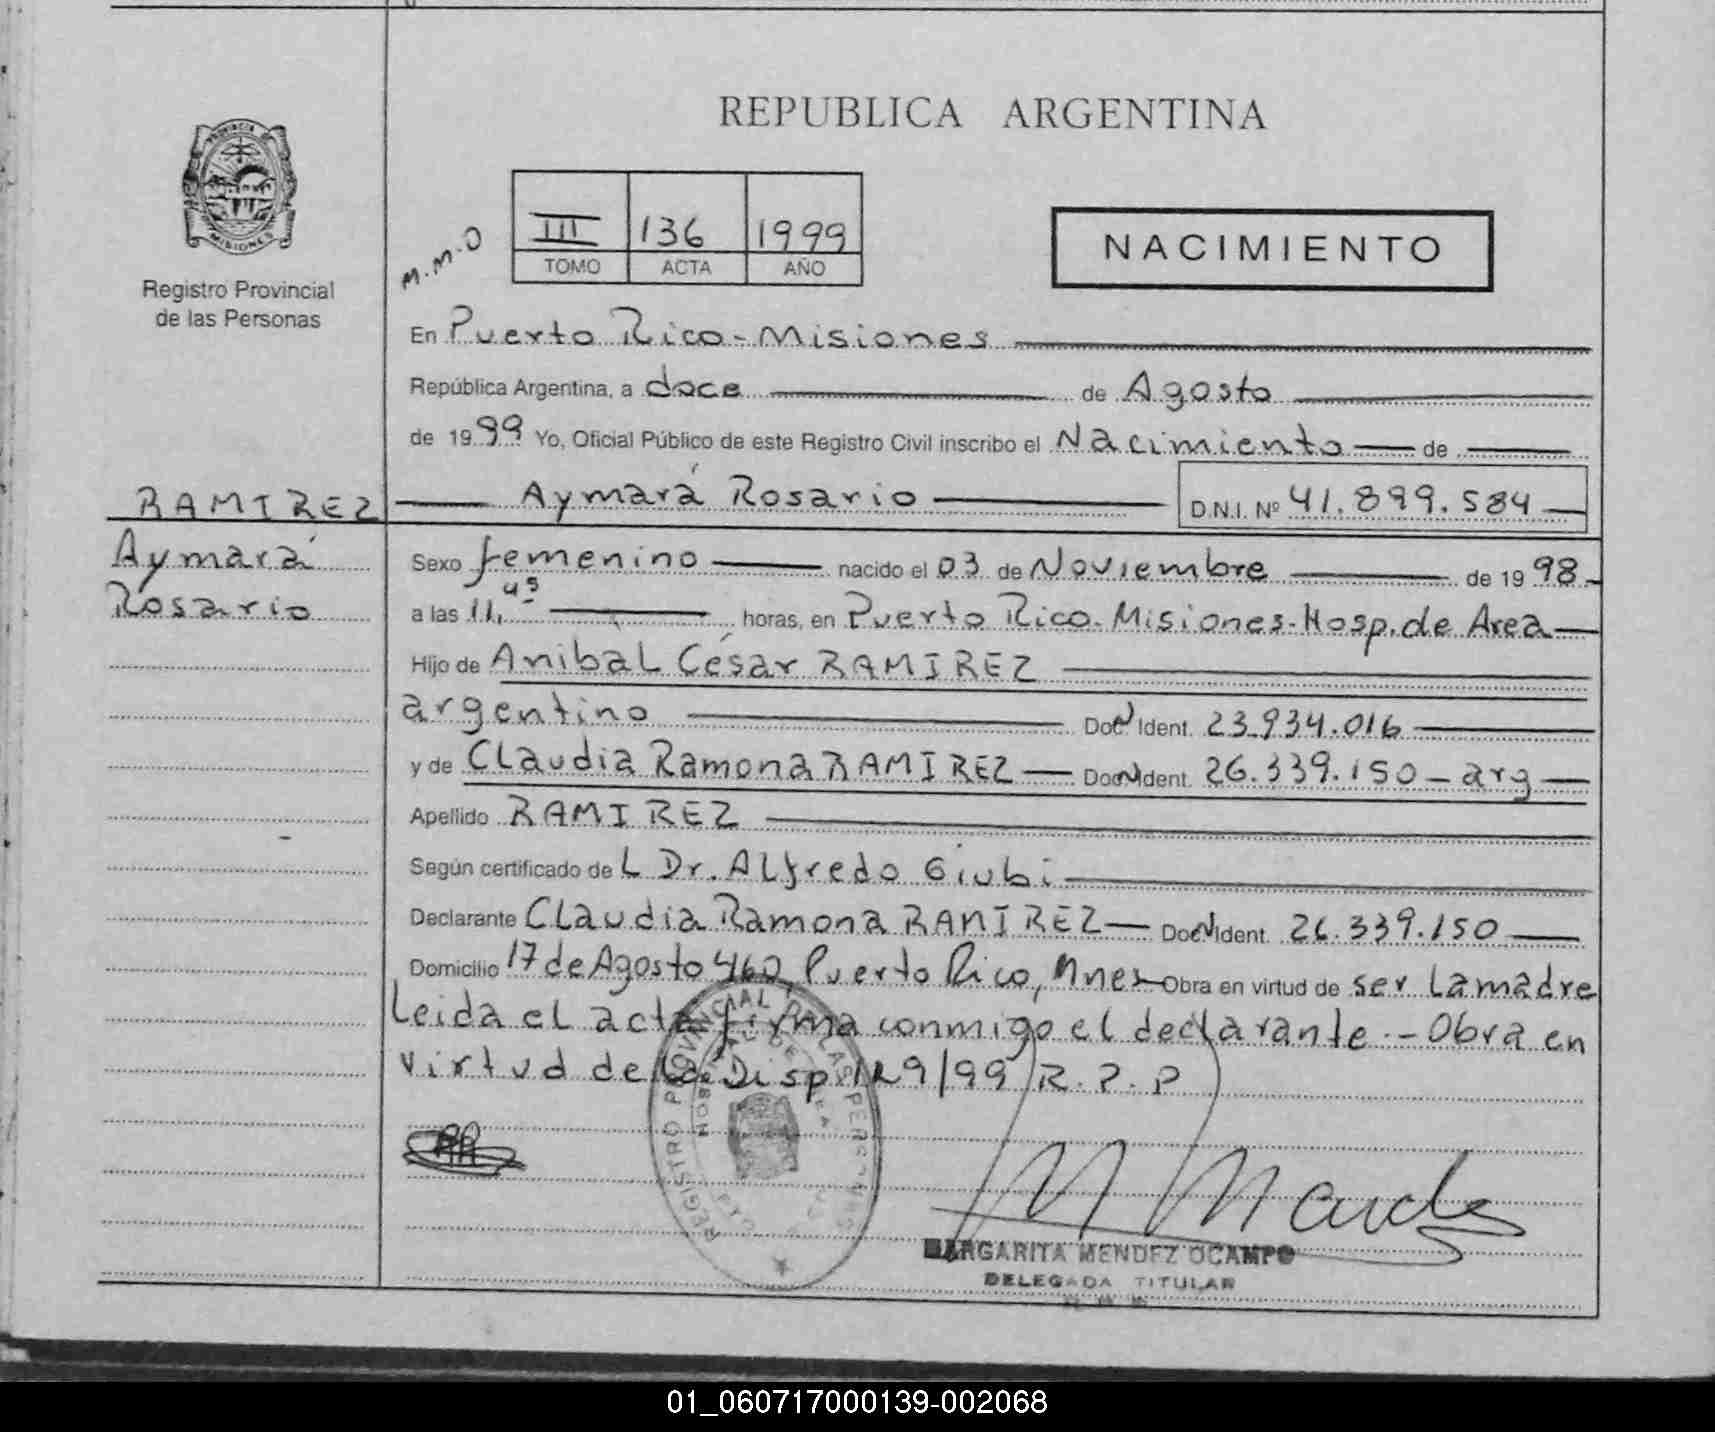 REPUBLICA ARGENTINA
PROVINCIA DE
MISIONES
Registro Provincial
de las Personas
M.M.O
III 136 1999
TOMO ACTA AÑO
NACIMIENTO
En Puerto Rico - Misiones
República Argentina, a doce de Agosto
de 1999 Yo, Oficial Público de este Registro Civil inscribo el Nacimiento de
RAMIREZ
Aymará Rosario D.N.I. Nº 41.899.584
Aymará
Rosario
Sexo femenino nacido el 03 de Noviembre de 1998
a las 11,45 horas, en Puerto Rico. Misiones. Hosp. de Area
Hijo de Anibal César RAMIREZ
argentino Doc Ident. 23.934.016
y de Claudia Ramona RAMIREZ Doc Ident. 26.339.150 - arg
Apellido RAMIREZ
Según certificado de L Dr. Alfredo Giubi
Declarante Claudia Ramona RAMIREZ Doc Ident. 26.339.150
Domicilio 17 de Agosto 460 Puerto Rico, Mnes Obra en virtud de ser La madre
Leida el acta firma conmigo el declarante. - Obra en
virtud de la Disp. 129/99 R.P.P
REGISTRO PROVINCIAL DE LAS PERSONAS
HOSPITAL DE AREA
M Mendez
MARGARITA MENDEZ OCAMPO
DELEGADA TITULAR
01_060717000139-002068